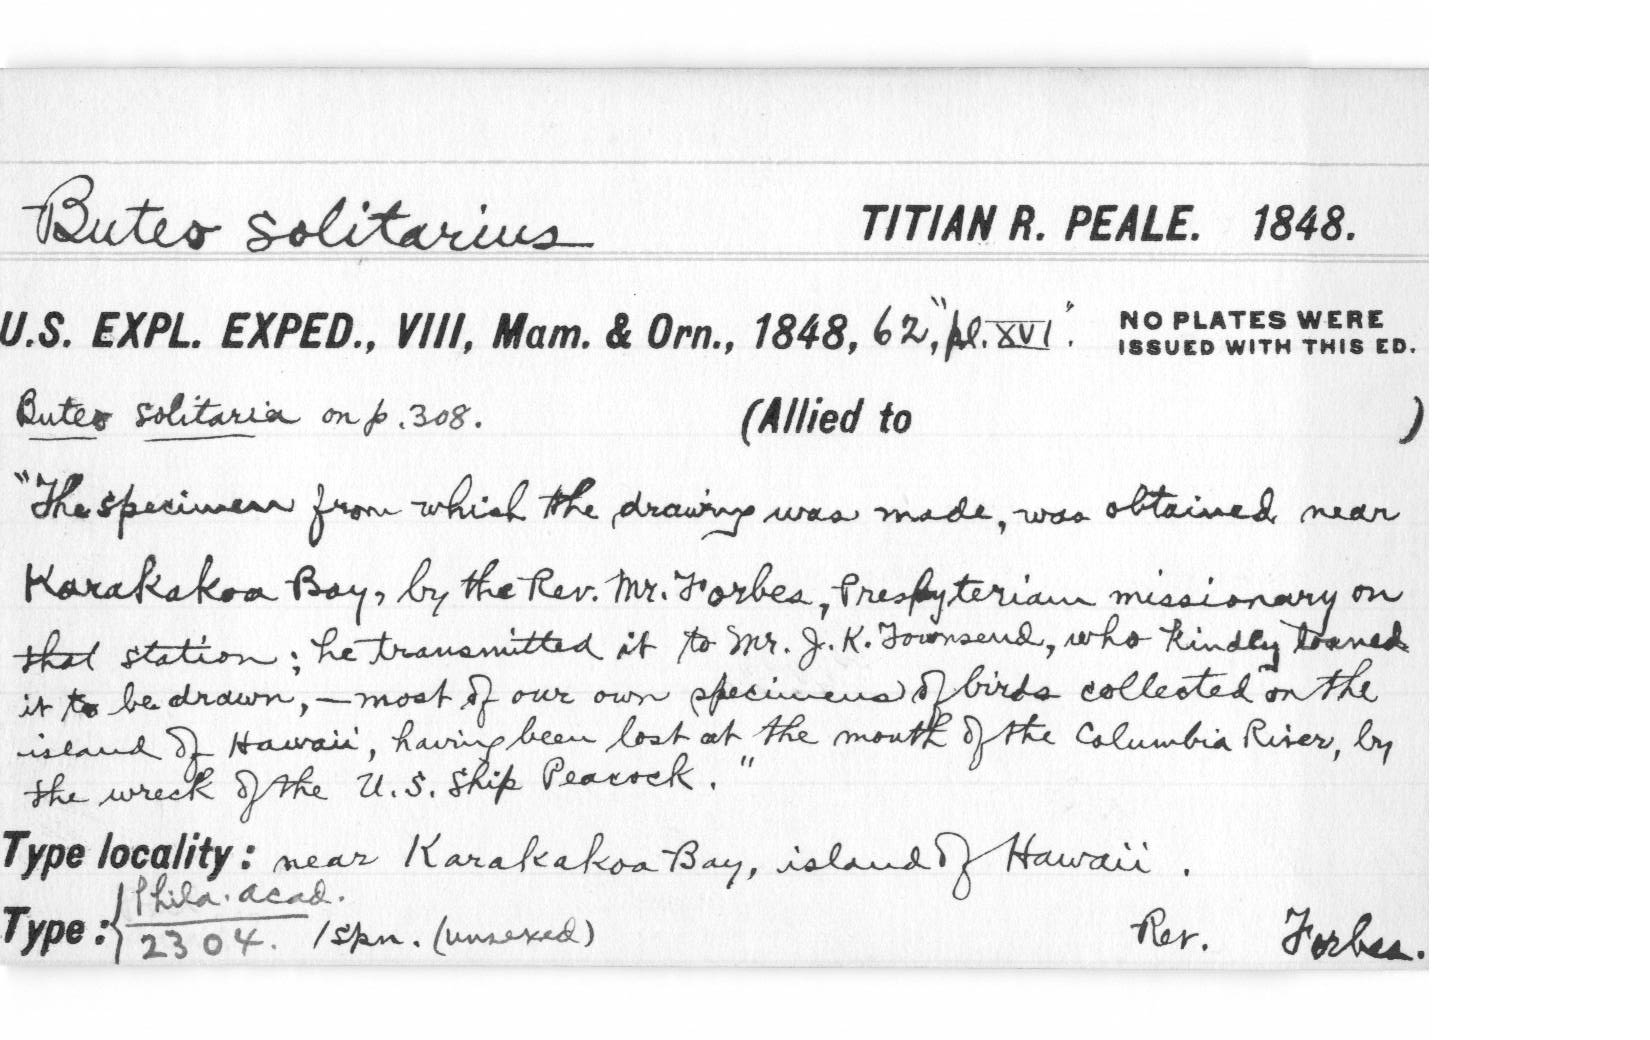 Buteo solitarius TITIAN R. PEALE. 1848.
U.S. EXPL. EXPED., VIII, Mam. & Orn., 1848, 62, "pl. XVI". NO PLATES WERE ISSUED WITH THIS ED.
Buteo solitaria on p. 308. (Allied to )
"The specimen from which the drawing was made, was obtained near
Karakakoa Bay, by the Rev. Mr. Forbes, Presbyterian missionary on
that station; he transmitted it to Mr. J. K. Townsend, who kindly loaned
it to be drawn, — most of our own specimens of birds collected on the
island of Hawaii, having been lost at the mouth of the Columbia River, by
the wreck of the U. S. Ship Peacock."
Type locality: near Karakakoa Bay, island of Hawaii.
Type: { Phila. acad.
2304. 1 spn. (unsexed) Rev. Forbes.